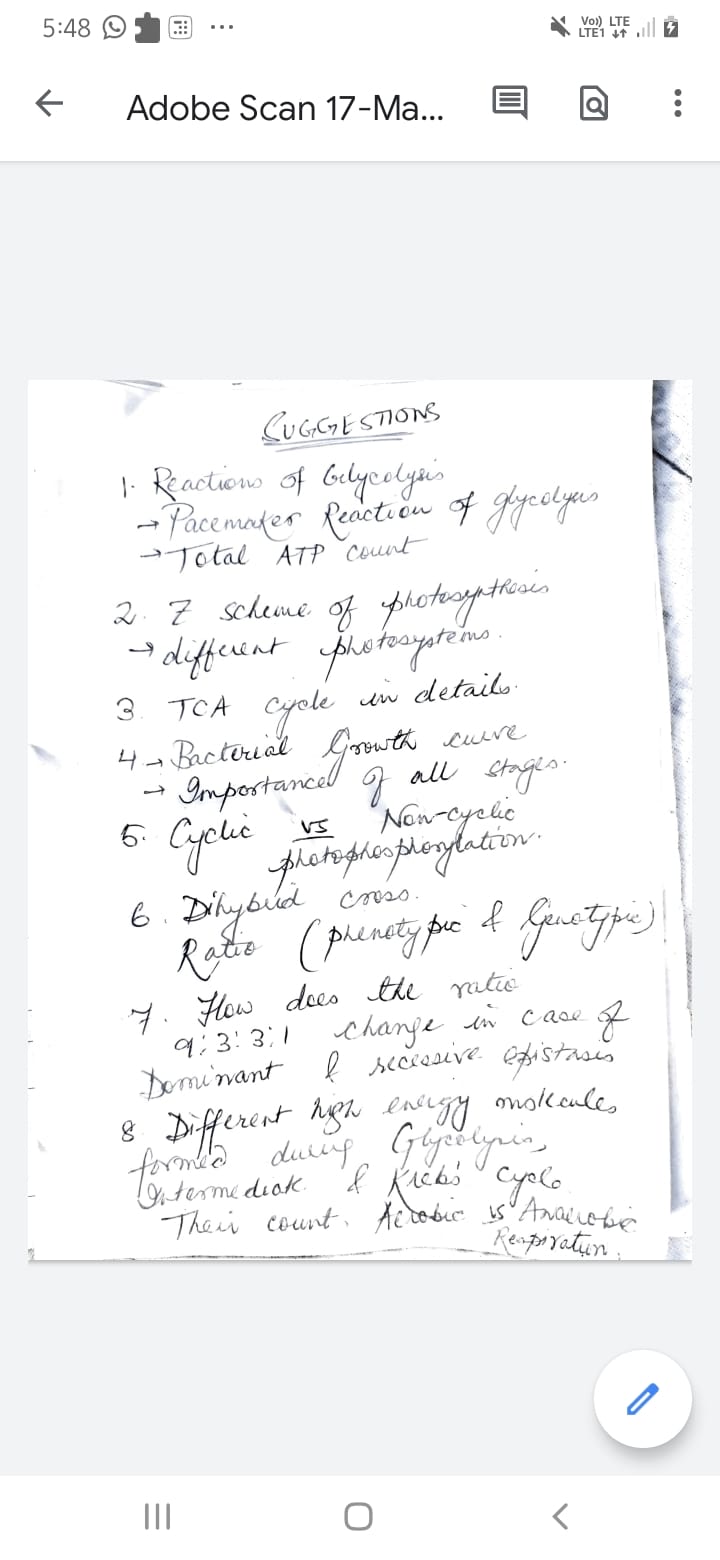 5:48 ...
Vo)) LTE
LTE1 ↓↑
Adobe Scan 17-Ma...
SUGGESTIONS
1. Reactions of Gelycolysis
→ Pacemaker Reaction of glycolysis
→ Total ATP count
2. Z scheme of photosynthesis
→ different photosystems.
3. TCA cycle in details.
4 → Bacterial Growth curve
→ Importance of all stages.
5. Cyclic vs Non-cyclic
photophosphorylation.
6. Dihybrid cross.
Ratio (phenotypic & Genotypic)
7. How does the ratio
9:3:3:1 change in case of
Dominant & recessive epistasis
8 Different high energy molecules
formed during Glycolysis,
Intermediate & Krebs' cycle
Their count. Aerobic vs Anaerobic
Respiration.